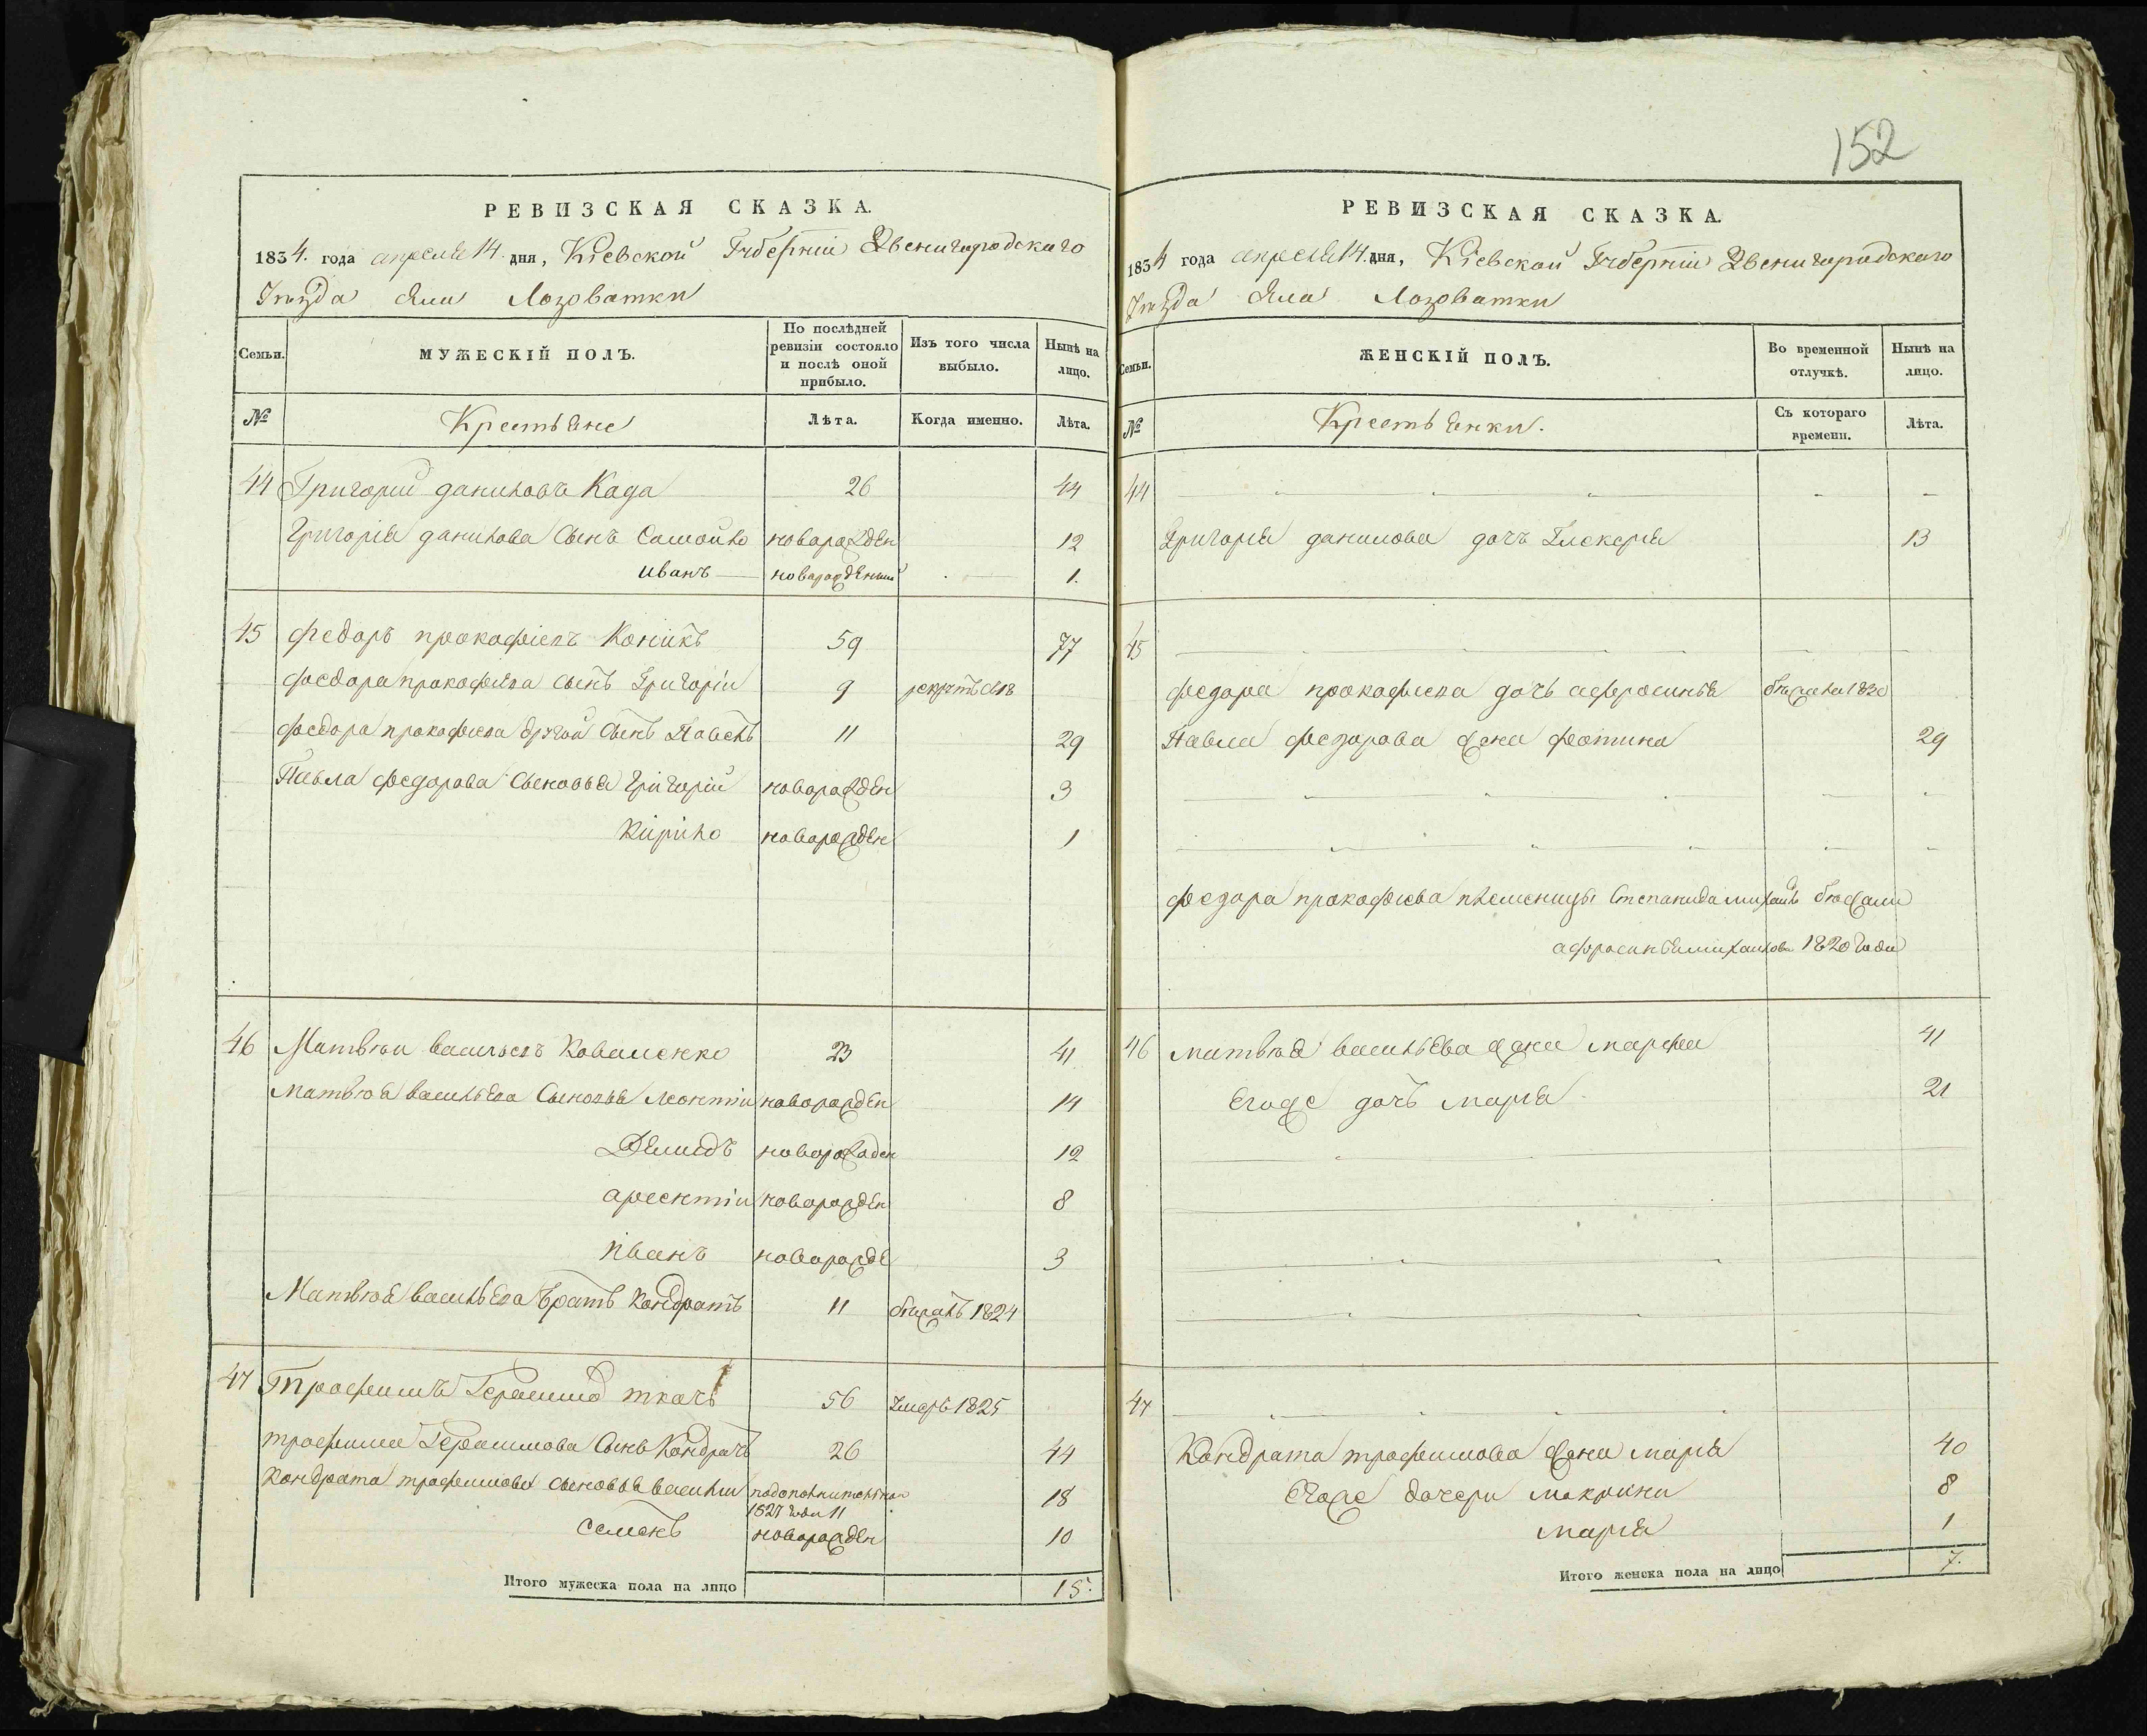 152
РЕВИЗСКАЯ СКАЗКА.
1834. года апреля 14. дня, Кіевской Губерніи Звенигородского
Уѣзда Села Лозоватки
Семьи. МУЖЕСКІЙ ПОЛЪ. По послѣдней ревизіи состояло и послѣ оной прибыло. Изъ того числа выбыло. Нынѣ на лицо.
№ Крестьяне Лѣта. Когда именно. Лѣта.
44 Григорий даниловъ Када 26 44
Григорія данилова Сынъ Самойло новорожден 12
иванъ новорожденный 1.
45 федоръ прокофіевъ Коникъ 59 77
федора прокофиева сынъ Григоріи 9 рекрутъ
федора прокофиева другой Сынъ Павелъ 11 29
Павла федорова Сыновья Григорій новорожден 3
Кирило новорожден 1
46 Матвѣи васильевъ Коваленко 23 41
Матвѣя васильева Сыновья леонтіи новорожден 14
Демидъ новорожден 12
арсентіи новорожден 8
иванъ новорожде 3
Матвѣя васильева братъ Кондратъ 11 бѣжалъ 1824
47 Трофимъ Герасимов ткачъ 56 умеръ 1825
трофима Герасимова Сынъ Кондратъ 26 44
Кондрата трофимова сыновья василіи подополнительнои 18
1827 года 11
семенъ новорожден 10
Итого мужеска пола на лицо 15.
РЕВИЗСКАЯ СКАЗКА
1834 года апреля 14. дня, Кіевской Губерніи Звенигородского
Уѣзда Села Лозоватки
Семьи. ЖЕНСКІЙ ПОЛЪ. Во временной отлучкѣ. Нынѣ на лицо.
№ Крестьянки. Съ котораго времени. Лѣта.
44
Григорія данилова дочъ Гликерія 13
45
федора прокофиева дочь афросинья бѣжала 1820
Павла федорова жена фотина 29
федора прокофиева племеницы Степанида михаил бѣжали
афросинья михаилова 1820 года
46 матвѣя васильева жена марфа 41
Егоже дочъ марія 21
47
Кондрата трофимова жена марія 40
Егоже дочери макрина 8
марія 1
Итого женска пола на лицо 7.